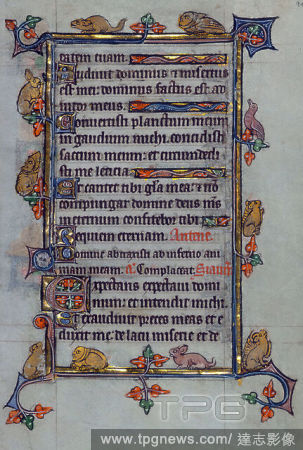 tatem tuam.
Audiuit dominus & misertus
est mei: dominus factus est adi
utor meus.
Conuertisti planctum meum
in gaudium michi: concidisti
saccum meum: et circumdedi
sti me leticia
Ut cantet tibi gloria mea: & no
conpungar domine deus ms
in eternum confitebor tibi
Requiem eternam. Antene
Domine abstraxisti ab inferno ani
mam meam. Complaceat. Psalm
Expectans expectaui domi
num: et intendit michi
Et exaudiuit preces meas et e
duxit me: de lacu miserie et de
TPG
www.tpgnews.com/達志影像